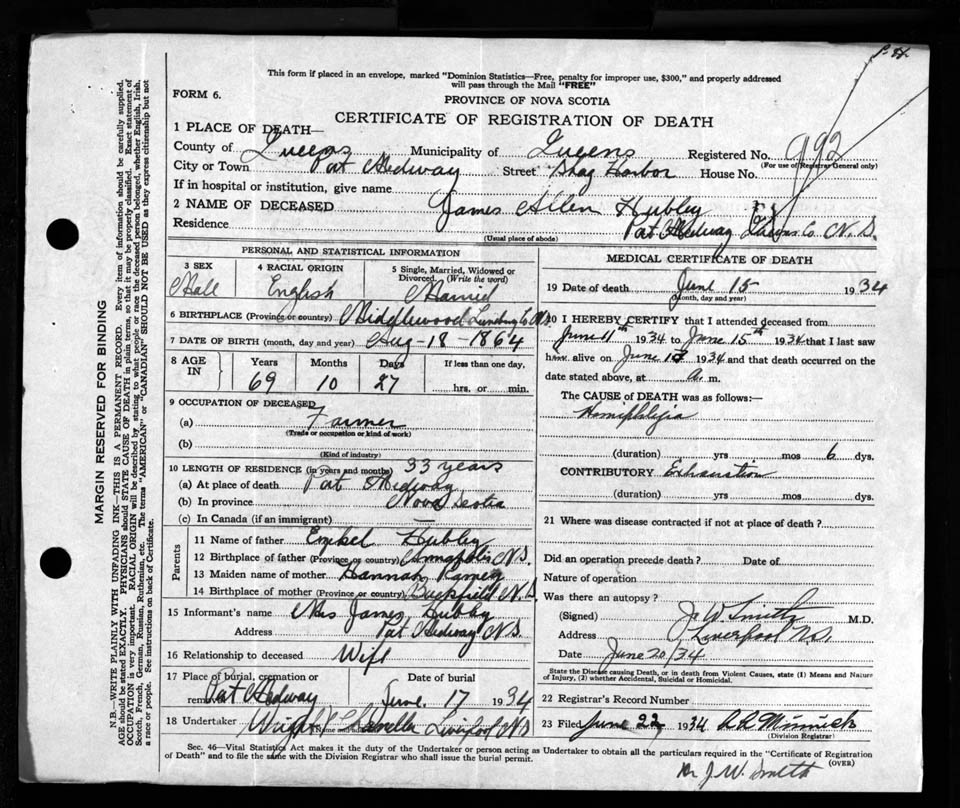 P. H.
This form if placed in an envelope, marked "Dominion Statistics—Free, penalty for improper use, $300," and properly addressed
will pass through the Mail "FREE"
FORM 6.
PROVINCE OF NOVA SCOTIA
CERTIFICATE OF REGISTRATION OF DEATH
1 PLACE OF DEATH—
County of Queens Municipality of Queens Registered No. 992
(For use of Registrar General only)
City or Town Port Medway Street Shag Harbor House No.
If in hospital or institution, give name
2 NAME OF DECEASED James Allen Hubley
Residence Port Medway Queens Co. N. S.
(Usual place of abode)
PERSONAL AND STATISTICAL INFORMATION
3 SEX Mall
4 RACIAL ORIGIN English
5 Single, Married, Widowed or Divorced. (Write the word) Married
6 BIRTHPLACE (Province or country) Middlewood Lunenburg Co N.S.
7 DATE OF BIRTH (month, day and year) Aug-18-1864
8 AGE IN Years Months Days If less than one day,
69 10 27 hrs. or min.
9 OCCUPATION OF DECEASED
(a) Farmer
(Trade or occupation or kind of work)
(b)
(Kind of industry)
10 LENGTH OF RESIDENCE (in years and months) 33 years
(a) At place of death Port Medway
(b) In province Nova Scotia
(c) In Canada (if an immigrant)
Parents
11 Name of father Hubley
12 Birthplace of father (Province or country) Annapolis N.S.
13 Maiden name of mother Hannah Ramey
14 Birthplace of mother (Province or country) Buckfield N.S.
15 Informant's name Mrs James Hubley
Address Port Medway N.S.
16 Relationship to deceased Wife
17 Place of burial, cremation or removal Port Medway Date of burial June 17 1934
18 Undertaker Wright Liverpool NS
(Name and address)
MEDICAL CERTIFICATE OF DEATH
19 Date of death June 15 1934
(Month, day and year)
20 I HEREBY CERTIFY that I attended deceased from
June 11th 1934 to June 15th 1934 that I last saw
h alive on June 1934 and that death occurred on the
date stated above, at a. m.
The CAUSE of DEATH was as follows:—
Hemiphlegia
(duration) yrs mos 6 dys.
CONTRIBUTORY Exhaustion
(duration) yrs mos dys.
21 Where was disease contracted if not at place of death?
Did an operation precede death? Date of
Nature of operation
Was there an autopsy?
(Signed) J W Smith M.D.
Address Liverpool N.S.
Date June 20/34
State the Disease causing Death, or in death from Violent Causes, state (1) Means and Nature
of Injury, (2) whether Accidental, Suicidal or Homicidal.
22 Registrar's Record Number
23 Filed June 22 1934
(Division Registrar)
Sec. 46—Vital Statistics Act makes it the duty of the Undertaker or person acting as Undertaker to obtain all the particulars required in the "Certificate of Registration
of Death" and to file the same with the Division Registrar who shall issue the burial permit. (OVER)
Dr J. W. Smith
MARGIN RESERVED FOR BINDING
N.B.—WRITE PLAINLY WITH UNFADING INK—THIS IS A PERMANENT RECORD. Every item of information should be carefully supplied.
AGE should be stated EXACTLY. PHYSICIANS should STATE CAUSE OF DEATH in plain terms, so that it may be properly classified. Exact statement of
OCCUPATION is very important. RACIAL ORIGIN will be described by stating to what people or race the deceased person belonged, whether English, Irish,
Scotch, French, German, Russian, Ruthenian, etc. The terms "AMERICAN" or "CANADIAN" SHOULD NOT BE USED as they express citizenship but not
a race or people. See instructions on back of Certificate.